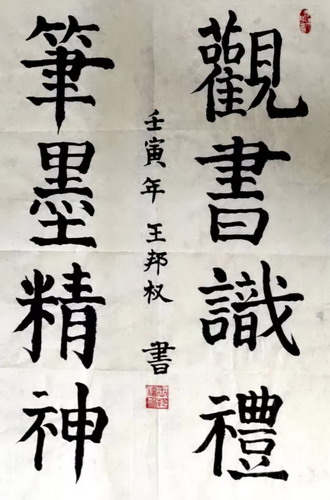 觀書識禮
筆墨精神
壬寅年王邦权書